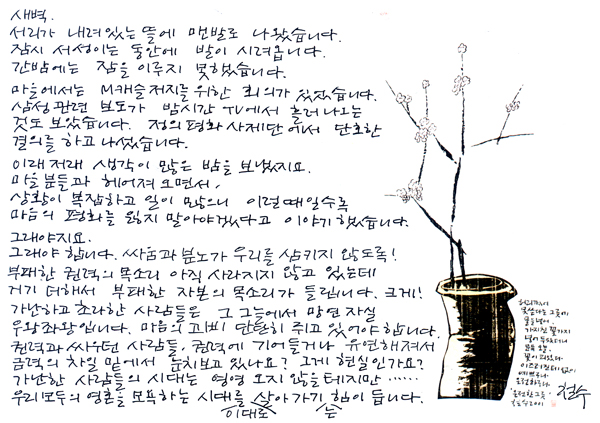 새벽.
서리가 내려있는 뜰에 맨발로 나왔습니다.
잠시 서성이는 동안에 발이 시려옵니다.
간밤에는 잠을 이루지 못했습니다.
마을에서는 M캐슬 저지를 위한 회의가 있었습니다.
삼성관련 보도가 밤시간 TV에서 흘러나오는
것도 보았습니다. 정의평화사제단에서 단호한
결의를 하고 나섰습니다.
이래저래 생각이 많은 밤을 보냈지요.
마을분들과 헤어져 오면서,
상황이 복잡하고 일이 많으니 이럴때일수록
마음의 평화는 잃지 말아야겠다고 이야기했습니다.
그래야지요.
그래야 합니다. 싸움과 분노가 우리를 삼키지 않도록!
부패한 권력의 목소리 아직 사라지지 않고 있는데
거기 더해서 부패한 자본의 목소리가 들립니다. 크게!
가난하고 초라한 사람들은 그 그늘에서 망연자실
우왕좌왕입니다. 마음의 고삐 단단히 쥐고 있어야 합니다.
권력과 싸우던 사람들, 권력에 기어들거나 유연해져서
금력의 차일 밑에서 눈치보고 있나요? 그게 현실인가요?
가난한 사람들의 시대는 영영 오지 않을테지만 ……
우리모두의 영혼을 모욕하는 시대를 살아가기 힘이 듭니다.
이대로 는
철수